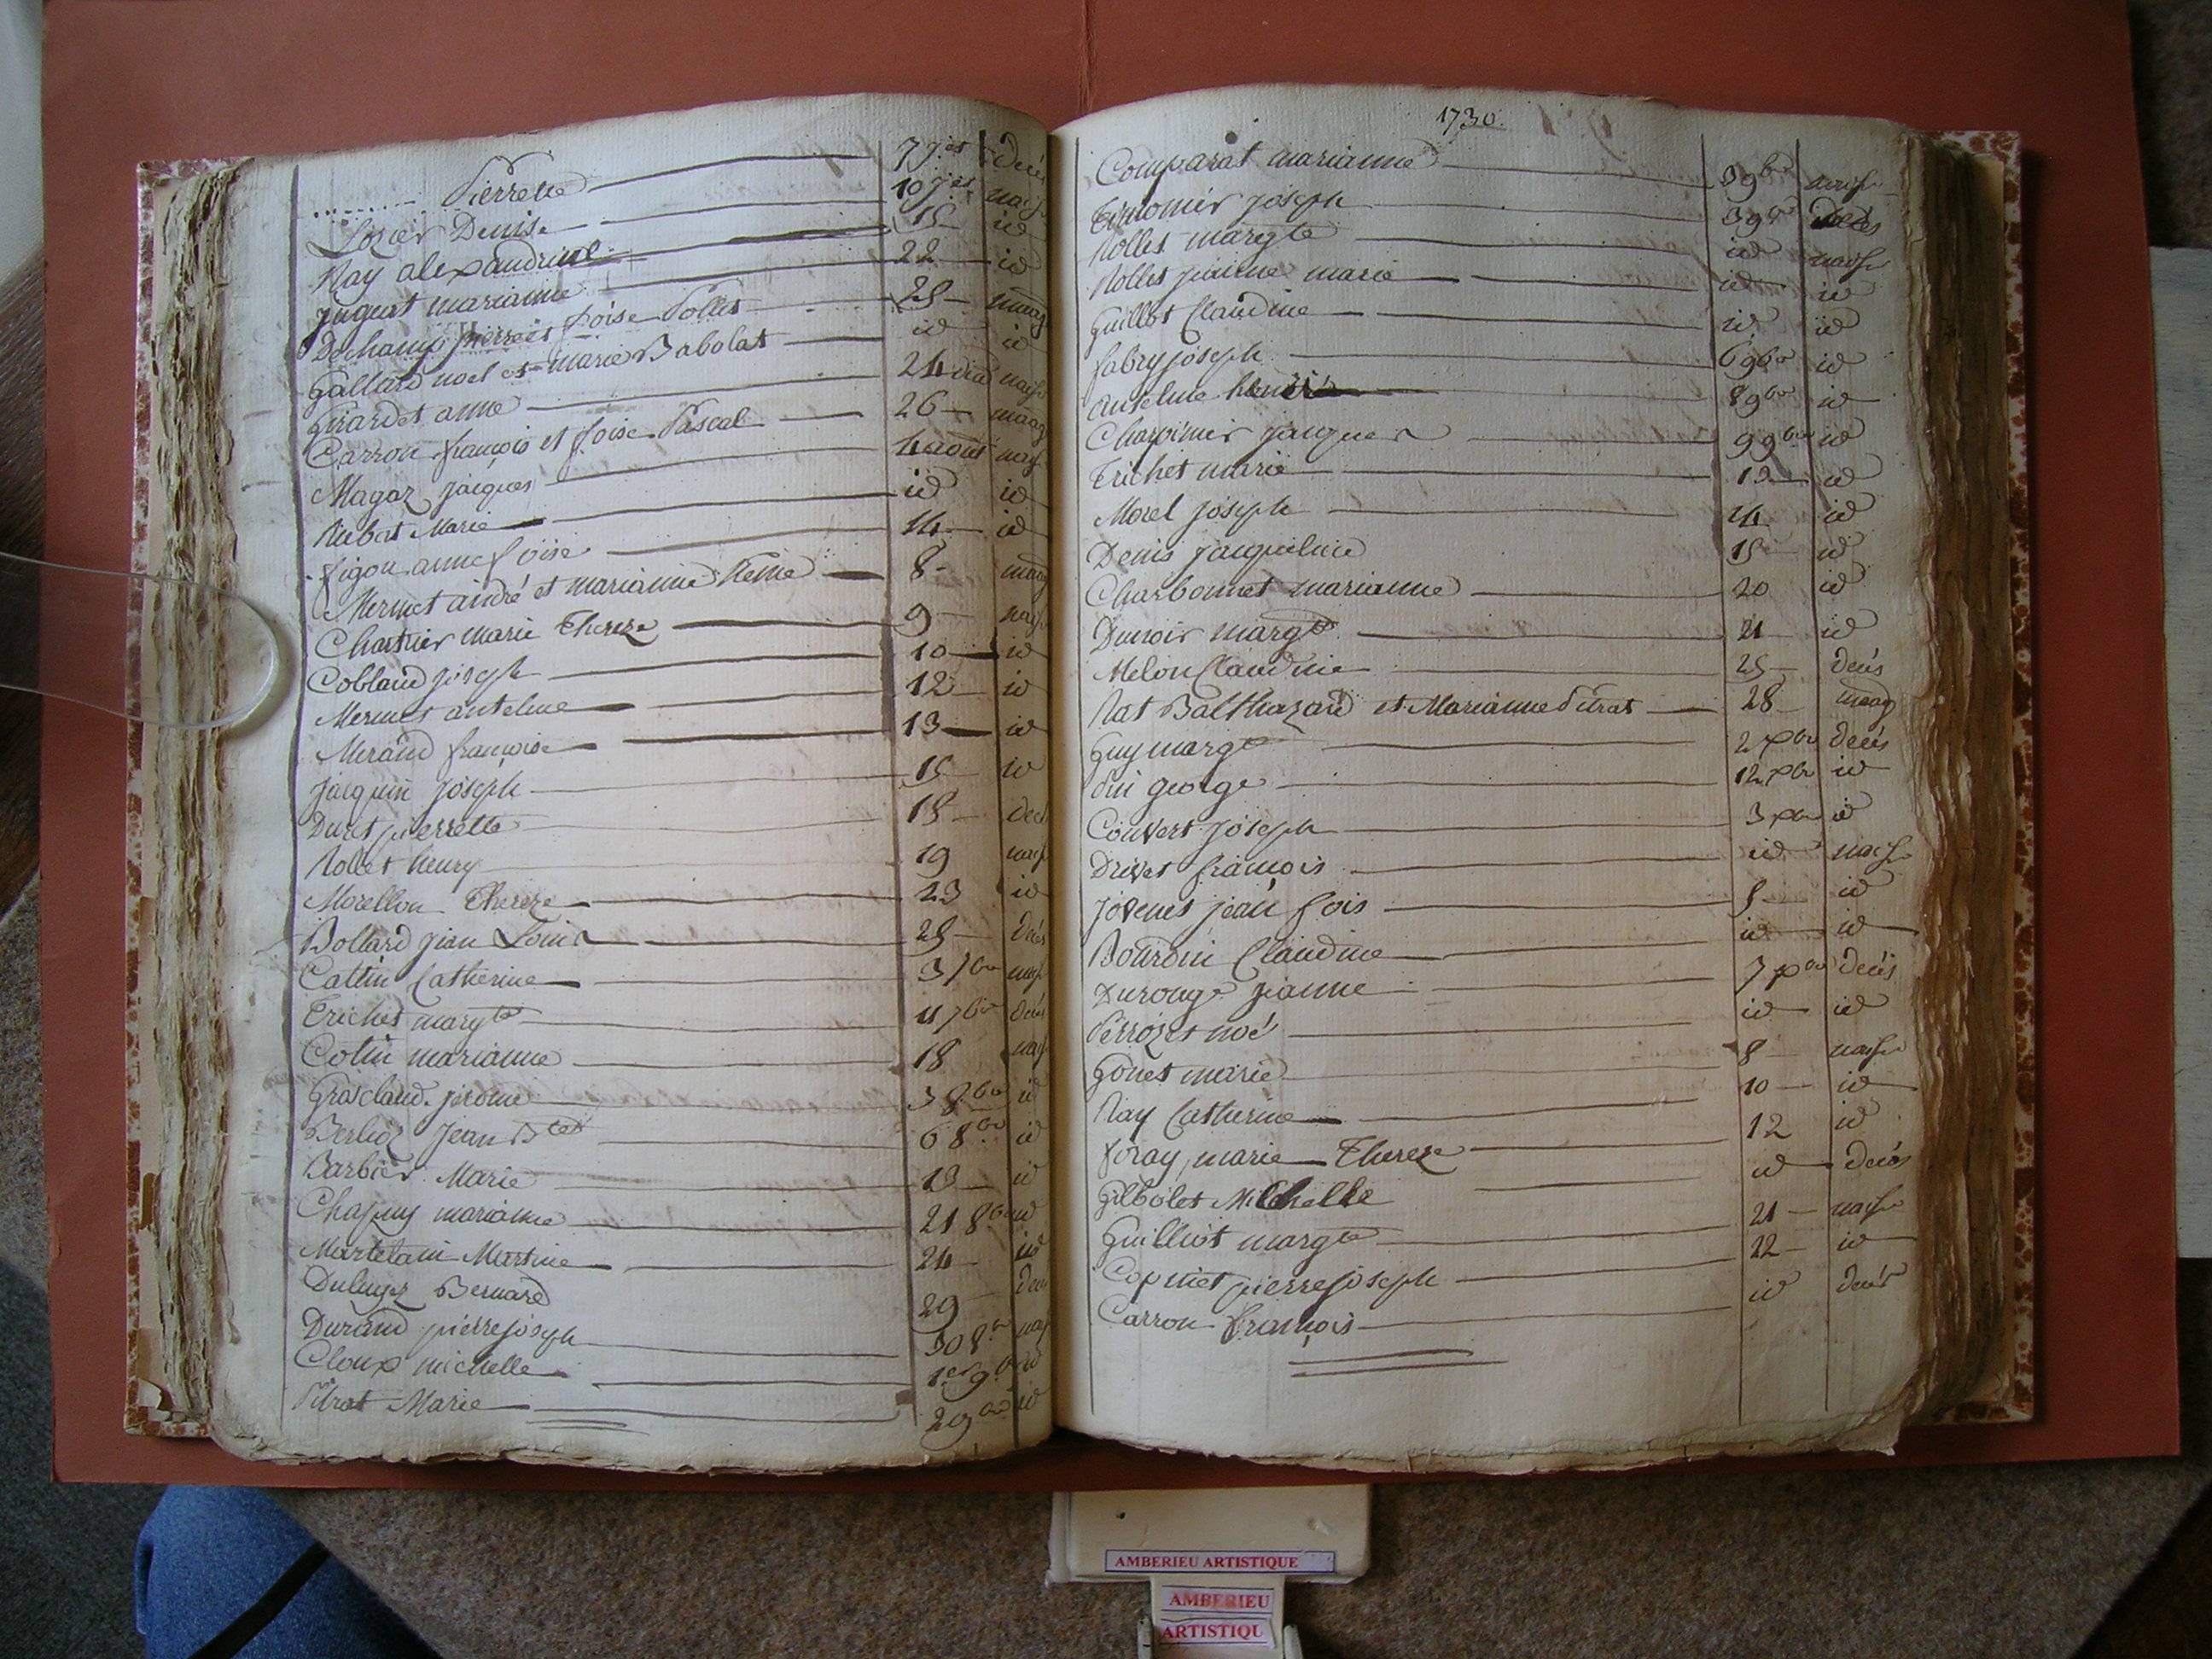 Pierrette 7 jet décès
Lozier Denise 10 jet naiss
Ray alexandrine 15 id
Juguet marianne 22 id
Dechamp pierre et foise Rollet 25 mariag
Galland noel et marie Babolat id id
Girardet anne 24 naiss
Carron françois et foise Pascal 26 mariag
Magaz jacques 4 aout naiss
Rubat Marie id id
figon anne foise 14 id
Mermet andré et marianne Reine 8 mariag
Chartrier marie Thereze 9 naiss
Cobland joseph 10 id
Mermet antelme 12 id
Merand francoise 13 id
jacquin joseph 15 id
Duret pierrette 18 décès
Rollet henry 19 naiss
Morellon Thereze 23 id
Bollard jean Louis 25 décès
Cattin Catherine 3 7bre naiss
Trichet margte 11 7bre décès
Cotin marianne 18 naiss
Grascland jerome 3 8bre id
Berlioz Jean Bte 6 8bre id
Barbier Marie 13 id
Chapuy marianne 21 8bre id
Martelain Martine 24 id
Duluyez Bernard 29 décès
Durand pierre joseph 30 8bre naiss
Cloux michelle 1er 9bre id
Pitrat Marie 2 9bre id
1730.
Comparat marianne 3 9bre naiss
Timonier joseph 3 9bre décès
Rollet margte id naisse
Rollet jeanne marie id id
Guillot Claudine id id
fabry joseph 6 9bre id
Anselme 8 9bre id
Charpinier jacques 9 9bre id
Trichet marie 12 id
Morel joseph 14 id
Denis jacqueline 15 id
Charbonnet marianne 20 id
Dunoir margte 21 id
Melon Claudine 25 décès
Rat Balthazard et Marianne Pitrat 28 mariag
Guy margte 2 xbre décès
george 12 xbre id
Couvert joseph 3 xbre id
Drivet francois id naisse
Jovenet jean fois 5 id
Bourdin Claudine id id
Durouge jeanne 7 xbre décès
Perrozet noé id id
Gonet marie 8 naisse
Ray Catherine 10 id
foray marie Thereze 12 id
Gilbolet Michelle id décès
Guilliot margte 21 naisse
Copinet pierre joseph 22 id
Carron François id décès
AMBERIEU ARTISTIQUE
AMBERIEU
ARTISTIQU